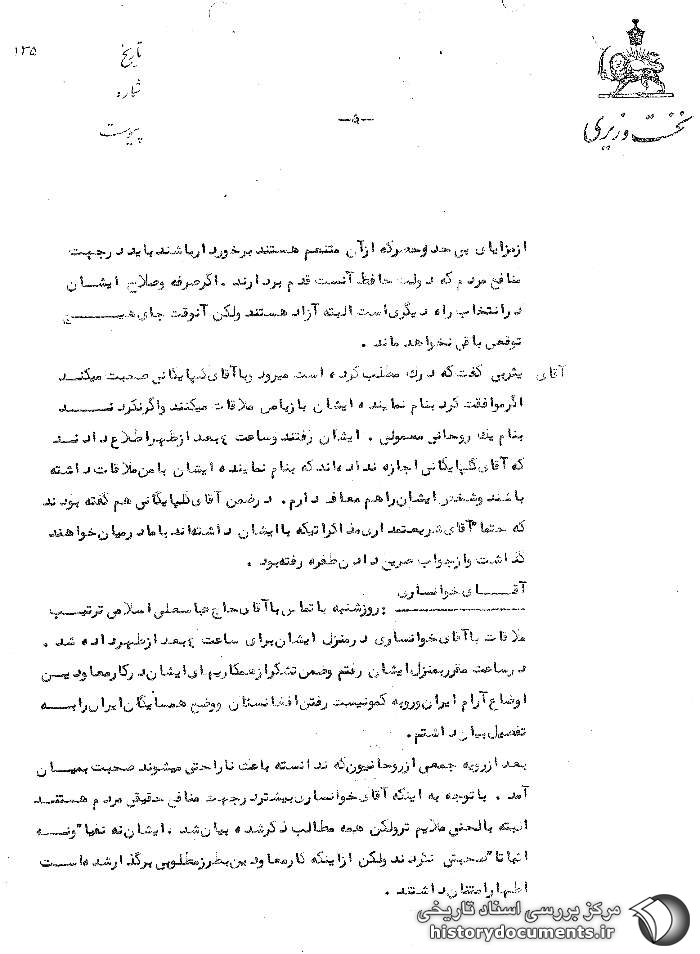 ۱۳۵
تاریخ
شماره
پیوست
نخست وزیری
-۵-
ازمزایای بی حد وحصرکه ازآن متنعم هستند برخوردارباشند باید درجهت
منافع مردم که دولت حافظ آنست قدم بردارند .اگرصرفه وصلاح ایشان
درانتخاب راه دیگری است البته آزاد هستند ولکن آنوقت جای هیچ
توقعی باقی نخواهد ماند .
آقای یثربی گفت که درک مطلب کرده است میرود وباآقای گلپایگانی صحبت میکند
اگرموافقت کرد بنام نماینده ایشان بازباهم ملاقات میکنند واگرنکردند
بنام یک روحانی معمولی . ایشان رفتند وساعت ٤ بعد ازظهراطلاع دادند
که آقای گلپایگانی اجازه نداده‌اند که بنام نماینده ایشان بامن ملاقات داشته
باشند وشخص ایشان راهم معاف دارم . درضمن آقای گلپایگانی هم گفته بودند
که حتما" آقای شریعتمداری مذاکراتیکه باایشان داشته‌اند باما درمیان خواهند
گذاشت وازجواب صریح دادن طفره رفته بود .
آقـــای خوانساری
روزشنبه باتماس باآقای حاج عباسعلی اسلامی ترتیب
ملاقات باآقای خوانساری درمنزل ایشان برای ساعت ٤ بعد ازظهرداده شد .
درساعت مقرربمنزل ایشان رفتم وضمن تشکرازهمکاریهای ایشان درکارمعاودین
اوضاع آرام ایران ورویه کمونیست رفتن افغانستان ووضع همسایگان ایران رابه
تفصیل بیان داشتم.
بعد ازرویه جمعی ازروحانیون که ندانسته باعث ناراحتی میشوند صحبت بمیان
آمد . باتوجه به اینکه آقای خوانساری بیشتردرجهت منافع حقیقی مردم هستند
البته بالحنی ملایم ترولکن همه مطالب ذکرشده بیان شد .ایشان نه نفیا" ونه
اثباتا" صحبتی نکردند ولکن ازاینکه کارمعاودین بطرزمطلوبی برگذارشده است
اظهارامتنان داشتند .
مرکز بررسی اسناد تاریخی
historydocuments.ir